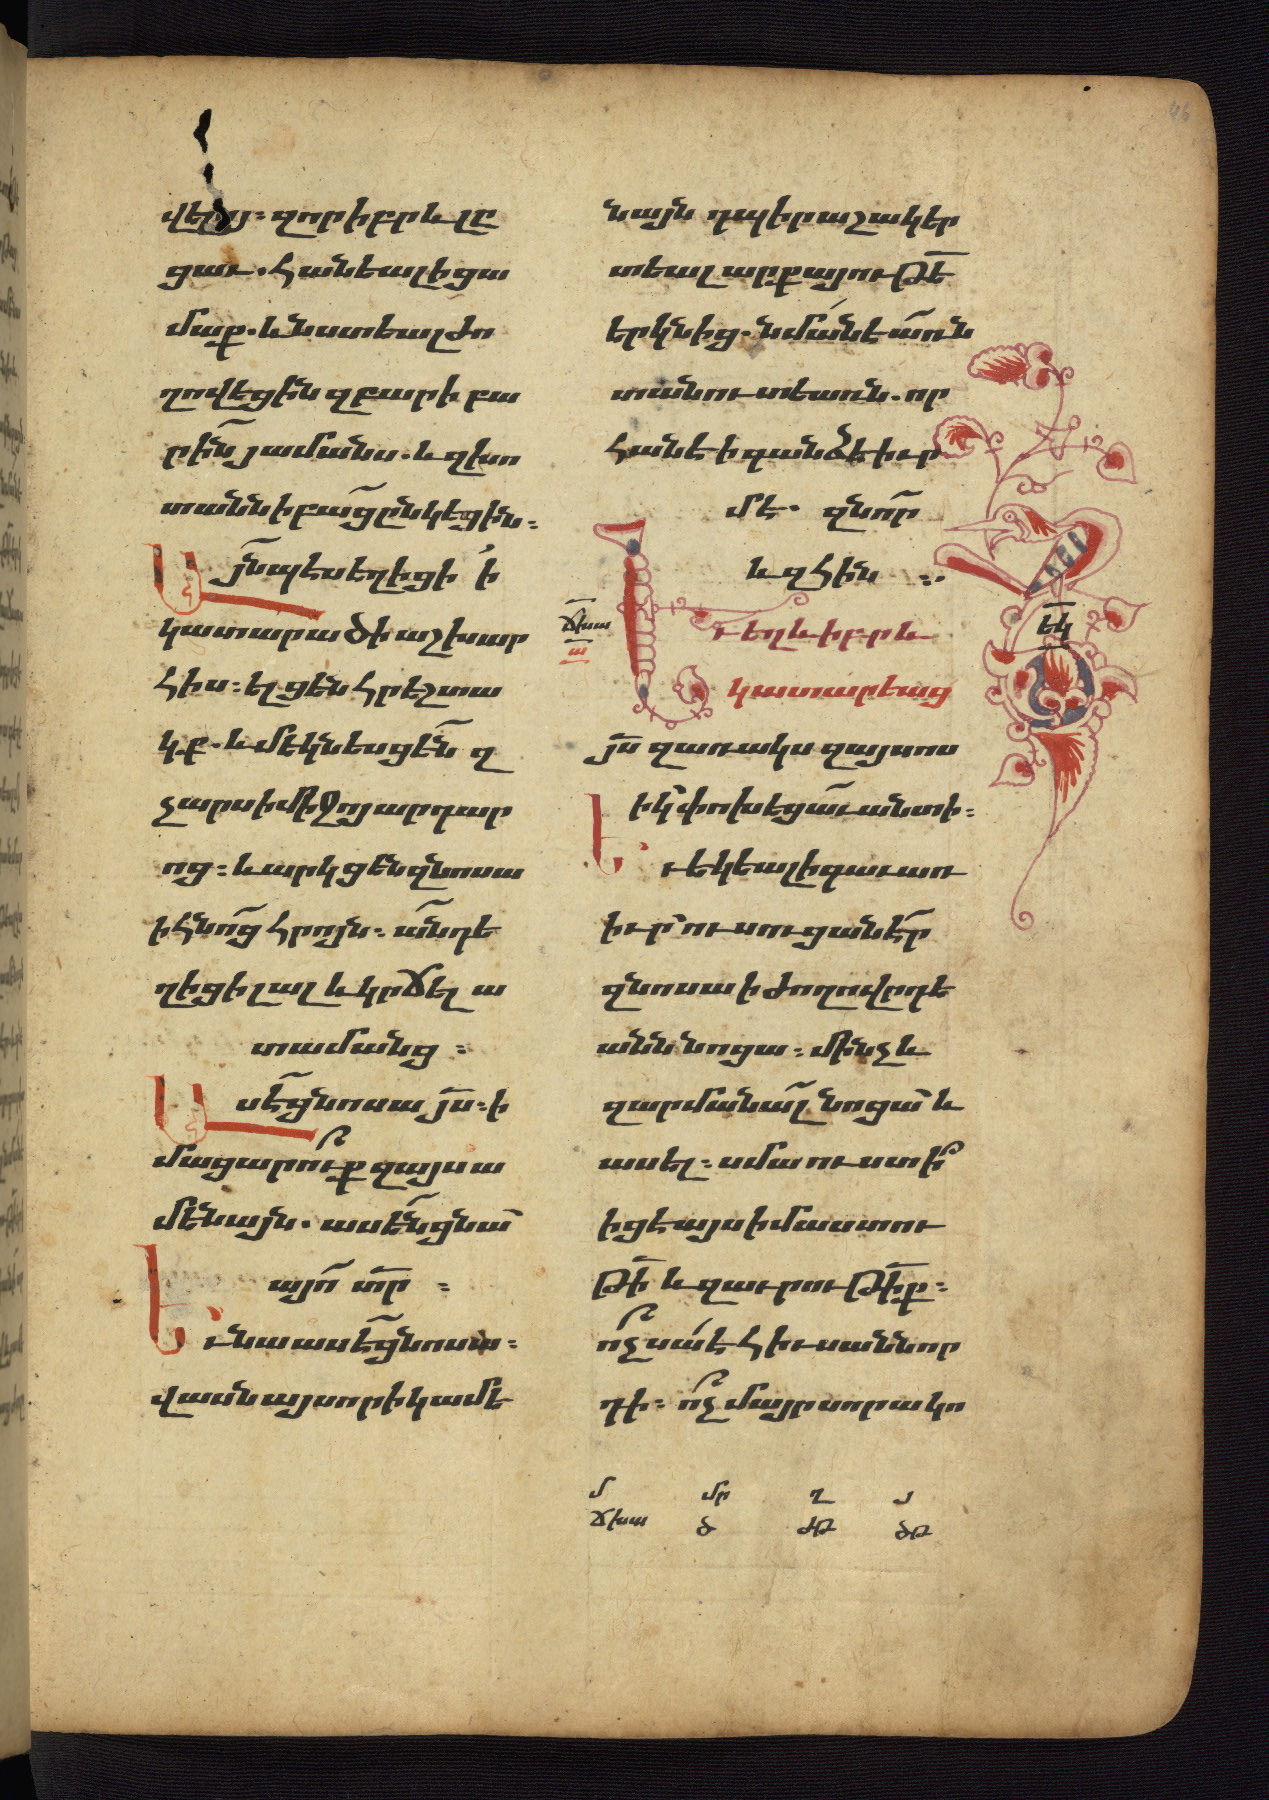 վեցոյ։ զոր իբրև լը
ցաւ. հանեալ ի ցա
մաք. և նստեալ ժո
ղովեցին զբարի բա
րին յամանս. և զխո
տանն ի բաց ընկեցին։
Այնպէս եղիցի ի
կատարածի աշխար
հիս։ ելցեն հրեշտա
կք. և մեկնեսցեն զ
չարս ի միջոյ արդար
ոց։ և արկցեն զնոսա
ի հնոց հրոյն. անդ ե
ղիցի լալ և կրճել ա
տամանց։
Ասէ ցնոսա յս։ ի
մացարո՞ւք զայս ա
մենայն. ասեն ցնա
այո տր։
Եւ նա ասէ ցնոսա։
վասն այսորիկ ամե
նայն դպիր աշակեր
տեալ արքայութե
երկնից. նման է առն
տանուտեառն. որ
հանէ ի գանձէ իւր
մէ. զնոր
և զհին ։.
ճխա
ա
Եւ եղև իբրև
կատարեաց
յս զառակս զայսոս
իկ փոխեցաւ անտի։
Եւ եկեալ ի գաւառ
իւր ուսուցանէր
զնոսա ի ժողովրդե
անն նոցա։ մինչև
զարմանալ նոցա և
ասել։ սմա ուստի՞
իցէ այս իմաստու
թի և զաւրութիք։
ո՞չ սա է հիւսանն որ
դի։ ո՞չ մայր սորա կո
եկ
մ մր ղ յ
ճխա ծ ժթ ծթ
46